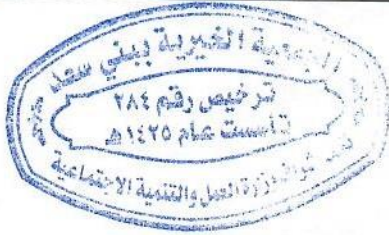 الجمعية الخيرية ببني سعد
ترخيص رقم ٢٨٤
تأسست عام ١٤٢٥هـ
تحت إشراف وزارة العمل والتنمية الاجتماعية